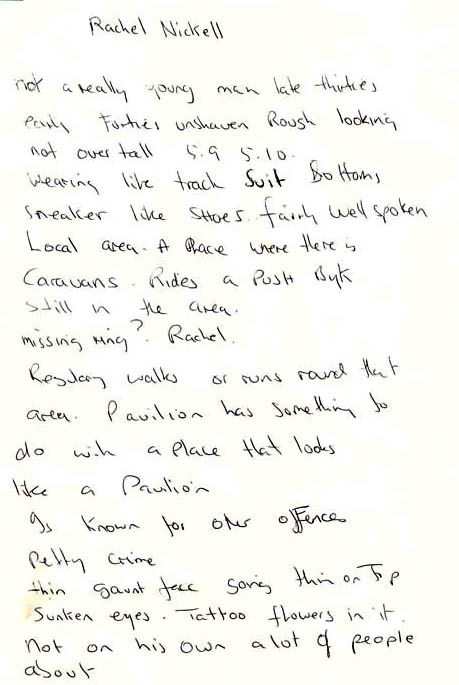 Rachel Nickell
not a really young man late thirties
early Forties unshaven Rough looking
not over tall 5.9 5.10.
wearing like track Suit Bottoms
Sneaker like Shoes. fairly well spoken
Local area. A Place where there is
Caravans. Rides a Push Byk
still in the area.
missing ring? Rachel.
Regulary walks or runs round that
area. Pavilion has something to
do with a Place that looks
like a Pavilion
Is Known for other offences
Petty Crime
thin gaunt face going thin on Top
Sunken eyes. Tattoo flowers in it.
Not on his own a lot of people
about